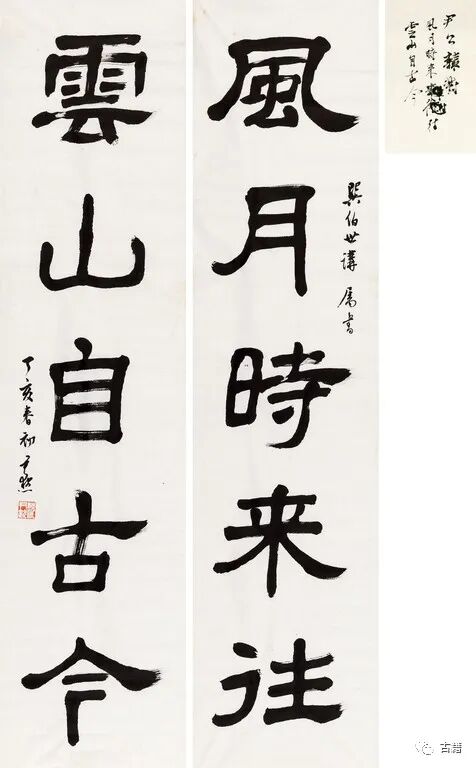 尹公
風月時来往
雲山自古今
風月時来往
巽伯世講 属書
雲山自古今
丁亥春初 尹默
古籍